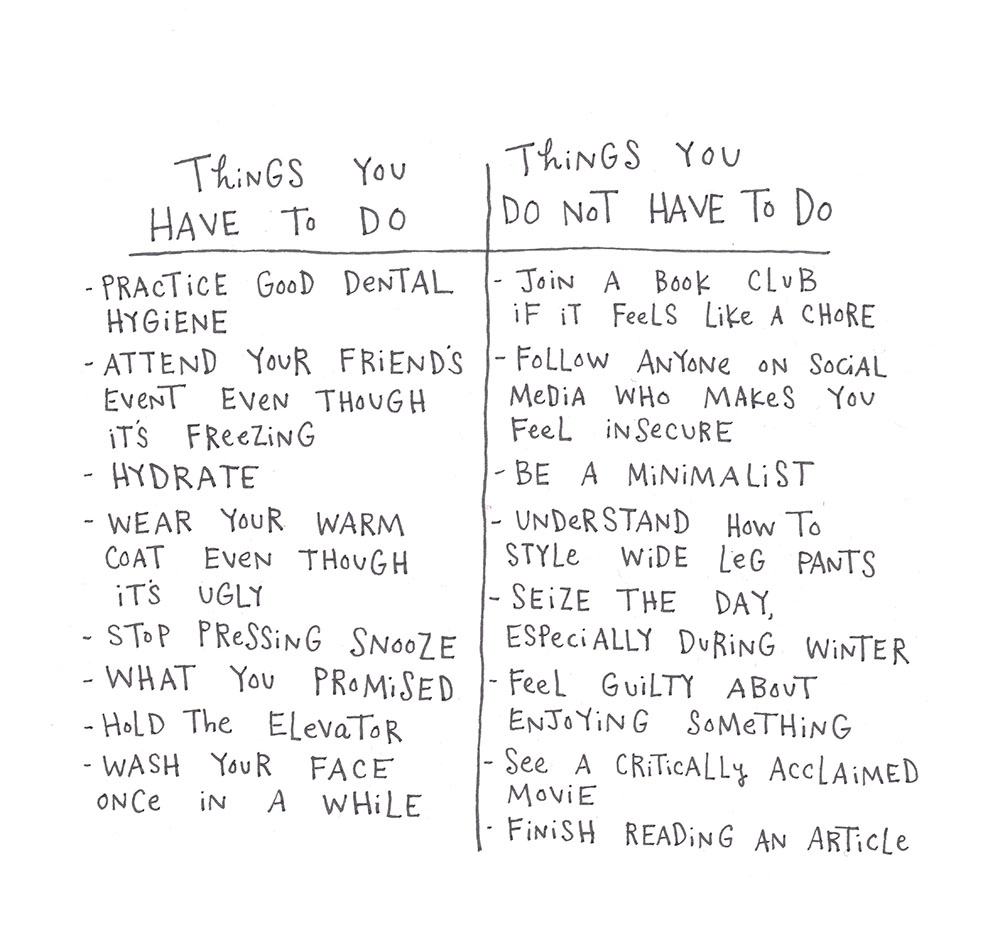 Things You
HAVE To DO
- PRACTiCE GooD DeNTAL
HYGiENE
- ATTEND YOUR FRiEND'S
EVeNT EVEN THOUGH
iT'S FReeZiNG
- HYDRATE
- WEAR YOUR WARM
COAT EVEN THOUGH
iT'S UGLY
- STOP PReSSiNG SNooZE
- WHAT YOU PRoMiSED
- HoLD The ELevaToR
- WASH YOUR FACE
ONCe iN A WHiLE
ThiNGS YOU
DO NoT HAVE To Do
- JoiN A Book CLUB
iF iT FeeLS Like A CHORE
- FoLLoW ANYoNe oN SoCiAL
MeDiA WHo MAKeS YOU
FeeL iNSeCURE
- BE A MiNiMALiST
- UNDeRSTAND HoW To
STYLe WiDE LeG PANTS
- SEiZE THE DAY,
ESPeCiALLY DURiNG WiNTER
- FeeL GUiLTY ABoUT
ENJoYiNG SoMeTHiNG
- See A CRiTiCALLy ACCLAiMED
MoViE
- FiNiSH READiNG AN ARTiCLe